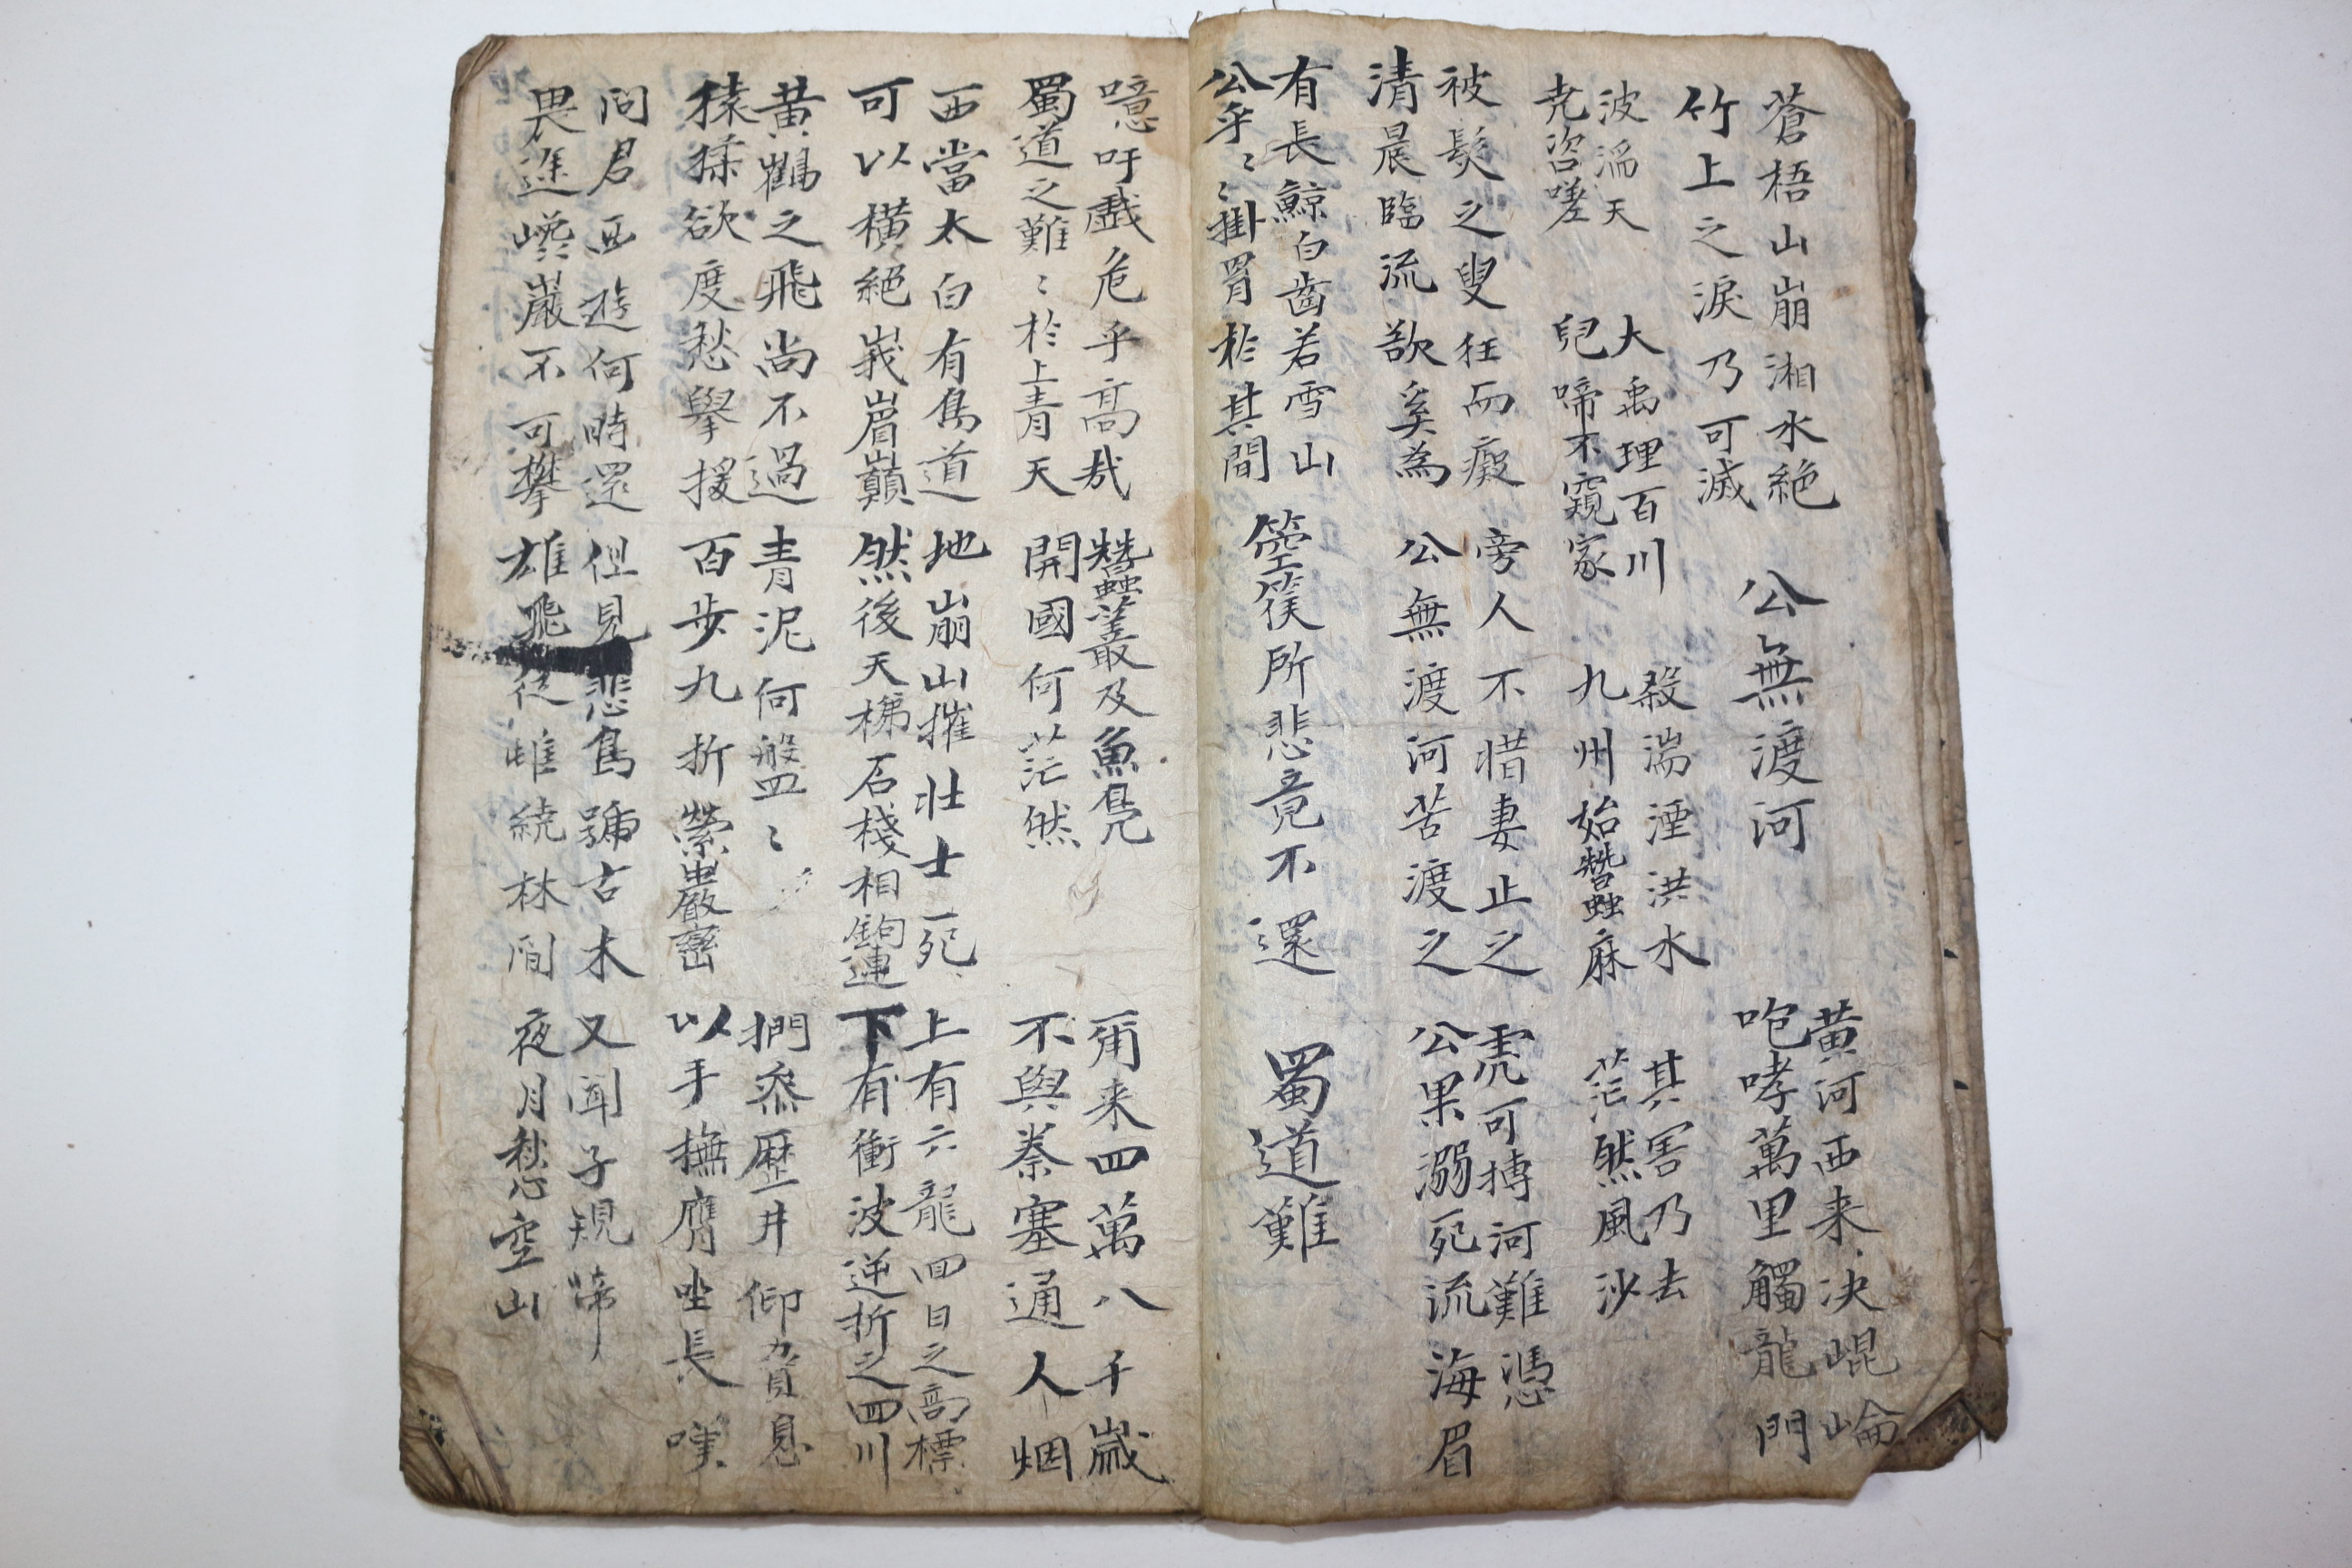 蒼梧山崩湘水絶
竹上之淚乃可滅
公無渡河
黄河西来决崐崘
咆哮萬里觸龍門
波滔天
尭咨嗟
大禹理百川
兒啼不窺家
殺湍湮洪水
九州始蠶麻
其害乃去
茫然風沙
被髮之叟狂而癡
清晨臨流欲奚為
旁人不惜妻止之
公無渡河苦渡之
虎可搏河難憑
公果溺死流海眉
有長鯨白齒若雪山
公乎〻〻掛罥於其間
箜篌所悲竟不還
蜀道難
噫吁戱危乎髙哉
蜀道之難〻於上青天
蠶叢及魚鳧
開國何茫然
爾来四萬八千歲
不與秦塞通人烟
西當太白有鳥道
可以横絕峩嵋巔
地崩山摧壯士死
然後天梯石棧相鉤連
上有六龍回日之髙標
下有衝波逆折之回川
黄鶴之飛尚不過
猿猱欲度愁攀援
青泥何盤〻
百步九折縈巖巒
捫叅歷井仰脅息
以手撫膺坐長嘆
問君西遊何時還
畏途巉巖不可攀
但見悲鳥號古木
雄飛從雌繞林間
又聞子規啼
夜月愁空山